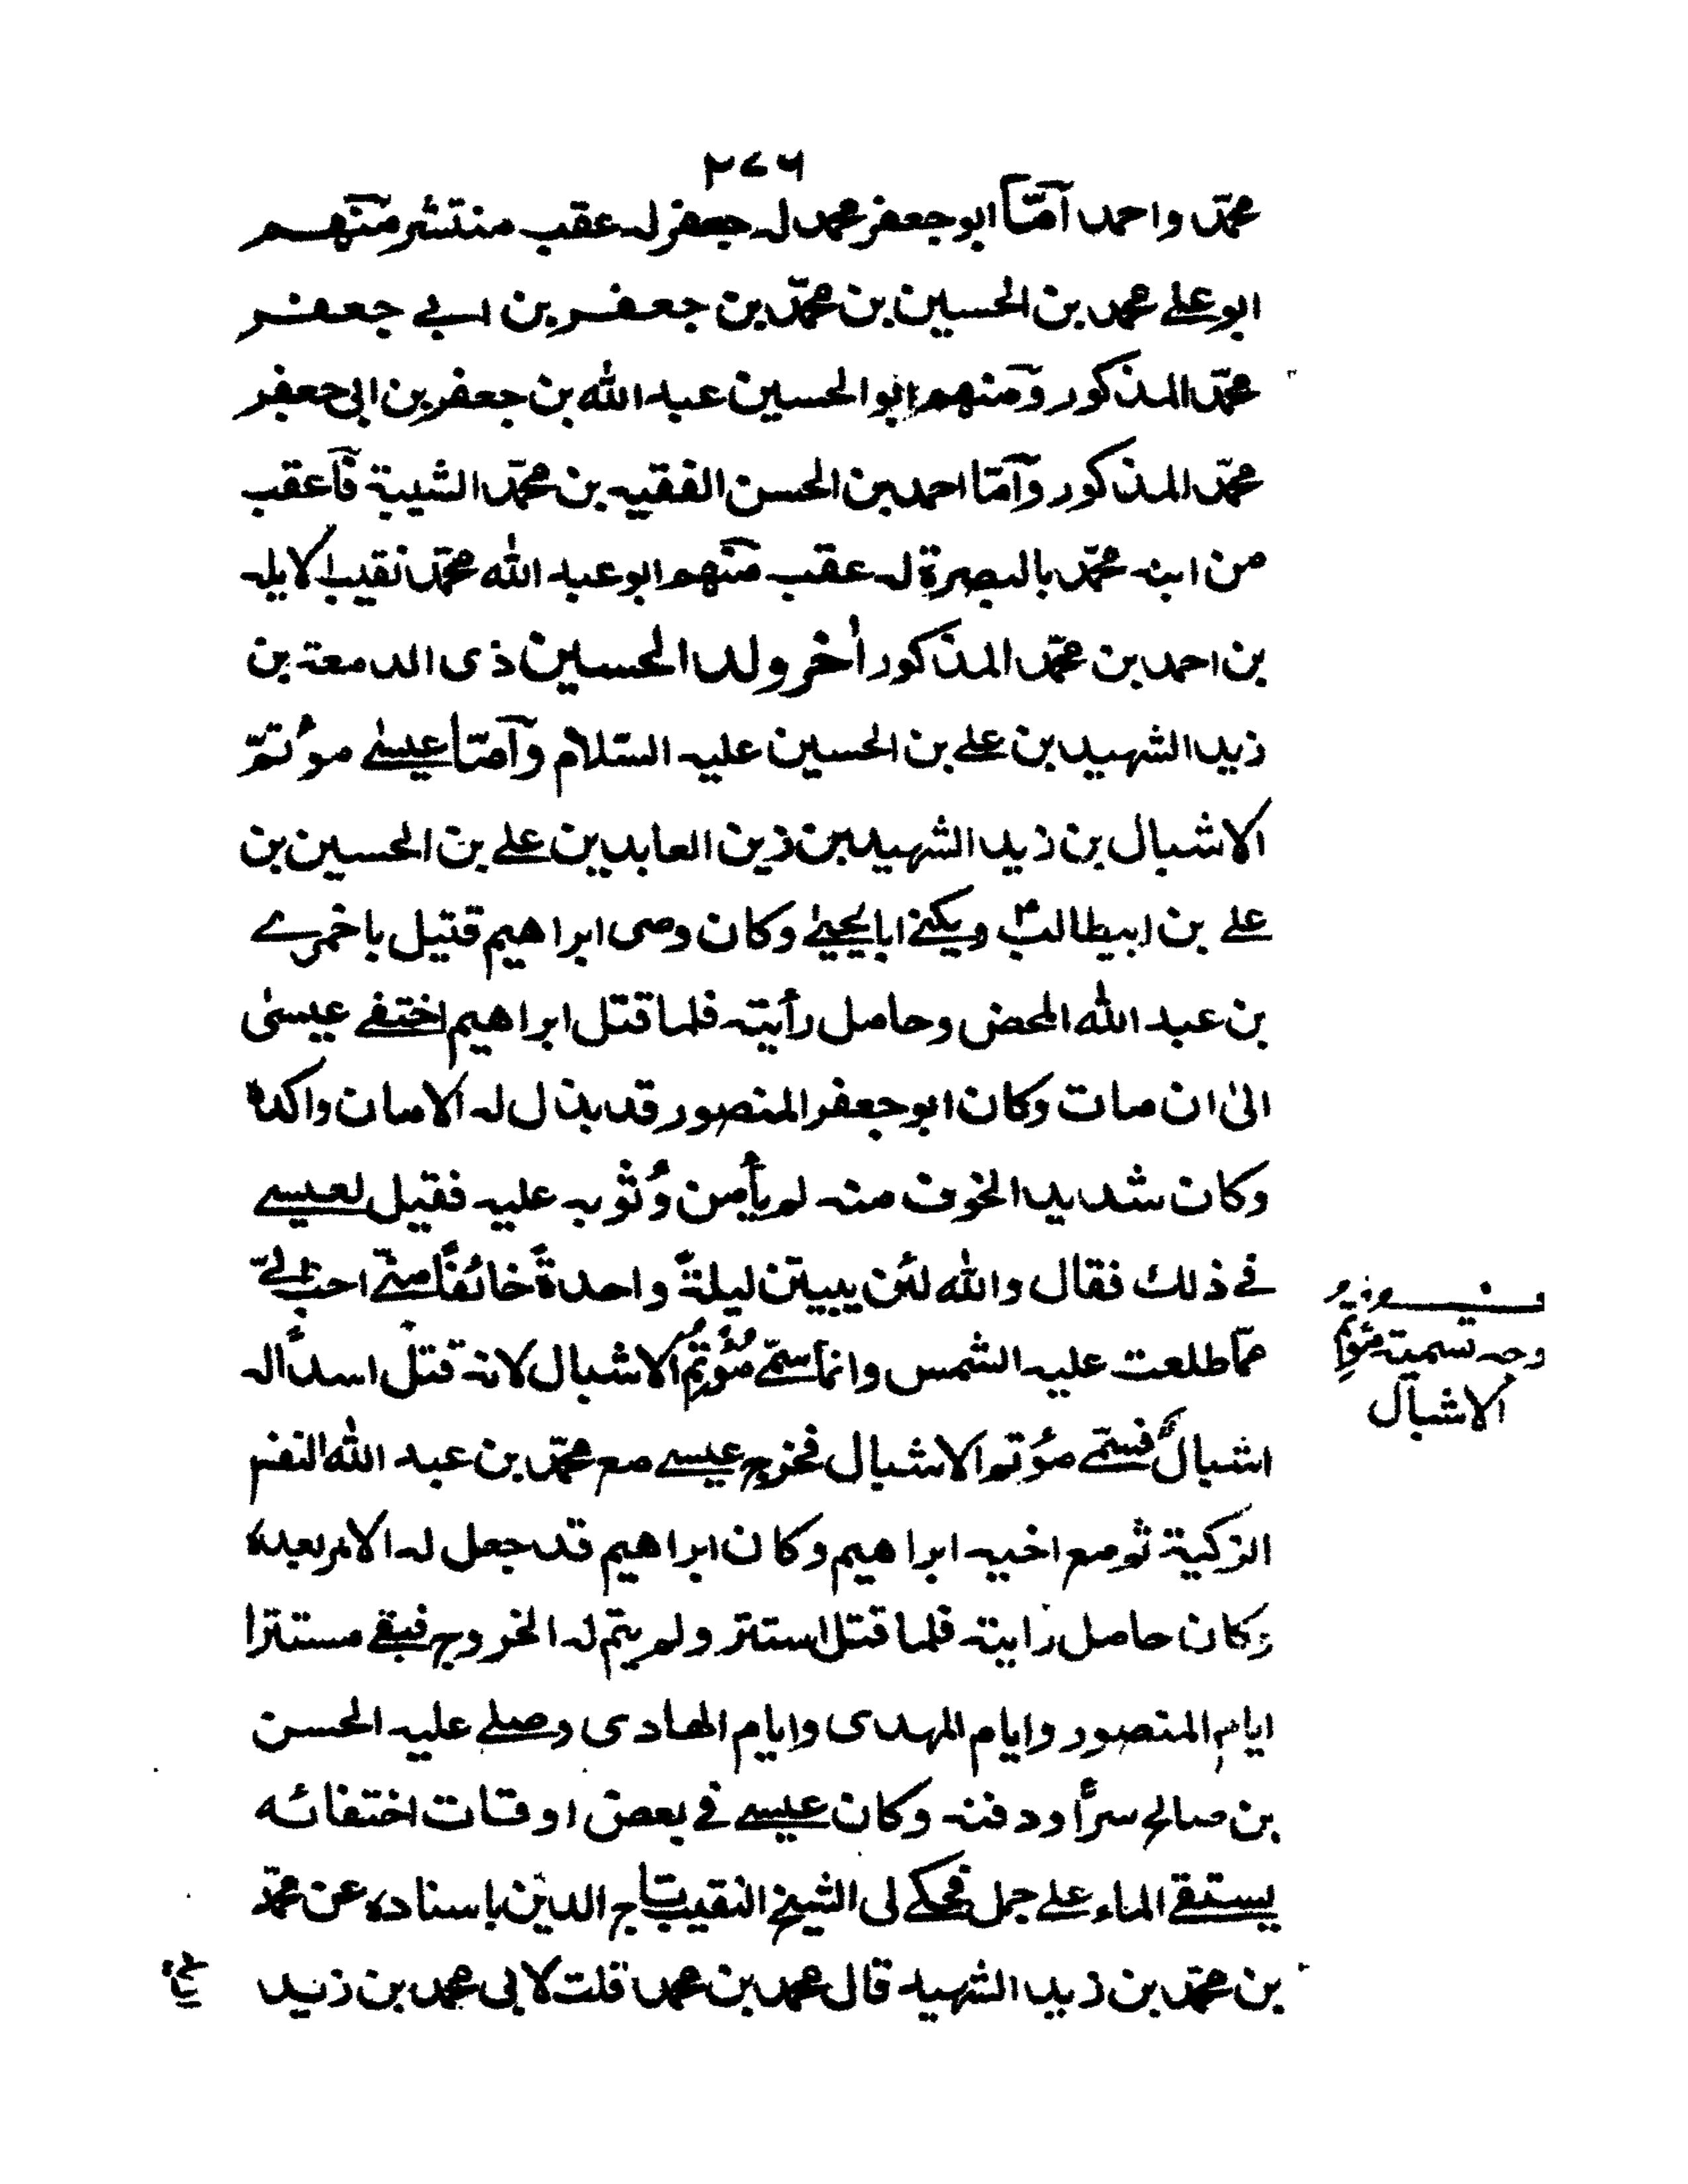 ٢٧٦
محمّد واحمد امّا ابو جعفر محمد له جعفر له عقب منتشر منهم
ابو علے محمد بن الحسين بن محمّد بن جعفر بن ابے جعفر
محمّد المذكور ومنهم ابو الحسين عبد الله بن جعفر بن ابى جعفر
محمّد المذكور وامّا احمد بن الحسن الفقيه بن محمّد الشبيه فاعقب
من ابنه محمّد بالبصرة له عقب منهم ابو عبد الله محمّد نقيب الايله
بن احمد بن محمّد المذكور اٰخر ولد الحسين ذى الدمعة بن
زيد الشهيد بن علے بن الحسين عليه السّلام وامّا عيسےٰ موُتمّ
الاشبال بن زيد الشهيد بن زين العابدين علے بن الحسين بن
علے بن ابيطالبؑ ويكنےٰ ابا يحيےٰ وكان وصى ابراهيم قتيل باخمرے
بن عبد الله المحض وحامل رأيته فلما قتل ابراهيم اختفے عيسىٰ
الىٰ ان مات وكان ابو جعفر المنصور قد بذل له الامان واكده
وكان شديد الخوف منه لم يأمن وُثوبه عليه فقيل لعيسے
فے ذلك فقال والله لئن يبيتن ليلةً واحدةً خائفًا منّے احبّ الےّ
ممّا طلعت عليه الشمس وانما سمّے مُؤتِمُ الاشبال لانه قتل اسدًا له
اشبالٌ فسمّے مؤتم الاشبال فخرج عيسے مع محمّد بن عبد الله النفس
الزكية ثم مع اخيه ابراهيم وكان ابراهيم قد جعل له الامر بعده
وكان حامل رايته فلما قتل استتر ولم يتم له الخروج فبقے مستترا
ايام المنصور وايام المهدى وايام الهادى وصلے عليه الحسن
بن صالح سرًّا ودفنه وكان عيسے فے بعض اوقات اختفائه
يستقے الماء علے جمل فحكے لى الشيخ النقيب تاج الدين باسناده عن محمّد
بن محمّد بن زيد الشهيد قال محمد بن محمد قلت لابى محمد بن زيد
وجه تسمية مُؤتِم
الاشبال